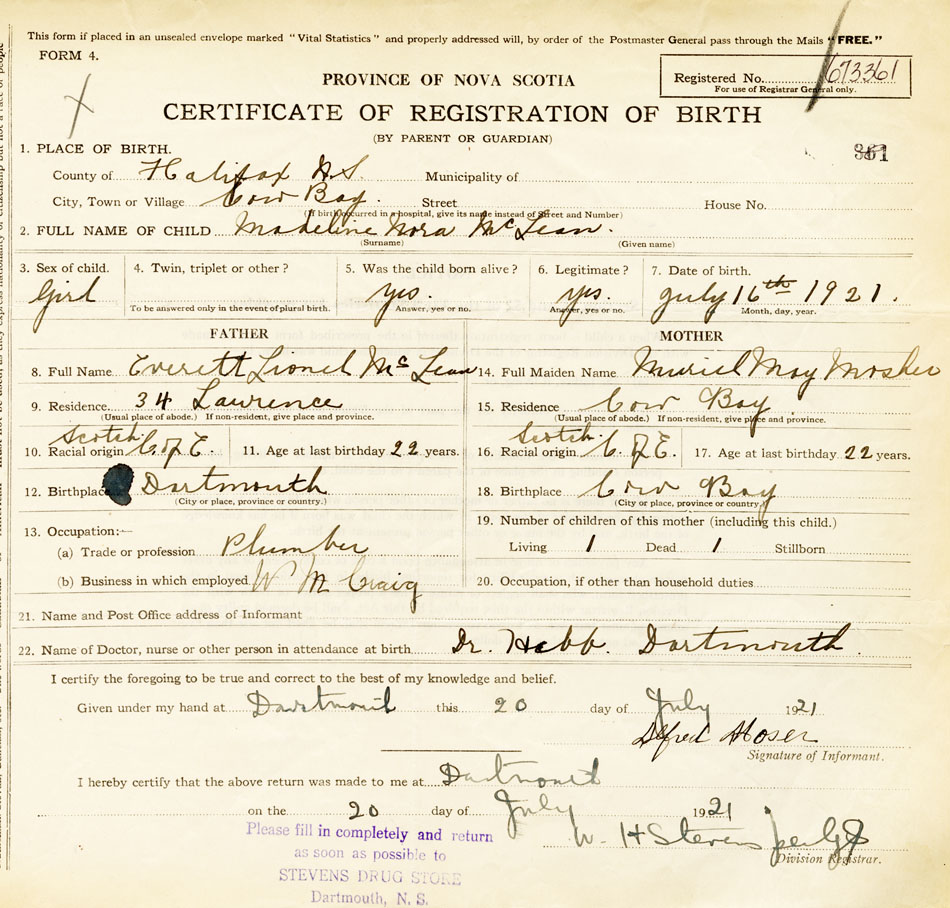 This form if placed in an unsealed envelope marked "Vital Statistics" and properly addressed will, by order of the Postmaster General pass through the Mails "FREE."
FORM 4.
PROVINCE OF NOVA SCOTIA
Registered No. 673361
For use of Registrar General only.
CERTIFICATE OF REGISTRATION OF BIRTH
(BY PARENT OR GUARDIAN)
1. PLACE OF BIRTH.
County of Halifax N.S. Municipality of
City, Town or Village Cow Bay. Street House No.
(If birth occurred in a hospital, give its name instead of Street and Number)
2. FULL NAME OF CHILD Madeline Nora McLean.
(Surname) (Given name)
3. Sex of child. 4. Twin, triplet or other? 5. Was the child born alive? 6. Legitimate? 7. Date of birth.
Girl yes. yes. July 16th 1921.
To be answered only in the event of plural birth. Answer, yes or no. Answer, yes or no. Month, day, year.
FATHER MOTHER
8. Full Name Everett Lionel McLean 14. Full Maiden Name Muriel May Mosher
9. Residence 34 Lawrence 15. Residence Cow Bay
(Usual place of abode.) If non-resident, give place and province. (Usual place of abode.) If non-resident, give place and province.
Scotch Scotch
10. Racial origin C. of E. 11. Age at last birthday 22 years. 16. Racial origin C. of E. 17. Age at last birthday 22 years.
12. Birthplace Dartmouth 18. Birthplace Cow Bay
(City or place, province or country.) (City or place, province or country.)
13. Occupation:— 19. Number of children of this mother (including this child.)
(a) Trade or profession Plumber Living 1 Dead 1 Stillborn
(b) Business in which employed W M Craig 20. Occupation, if other than household duties
21. Name and Post Office address of Informant
22. Name of Doctor, nurse or other person in attendance at birth Dr. Hebb. Dartmouth.
I certify the foregoing to be true and correct to the best of my knowledge and belief.
Given under my hand at Dartmouth this 20 day of July 1921
Alfred Moser
Signature of Informant.
I hereby certify that the above return was made to me at Dartmouth
on the 20 day of July 1921
W. H Stevens
Division Registrar.
Please fill in completely and return
as soon as possible to
STEVENS DRUG STORE
Dartmouth, N. S.